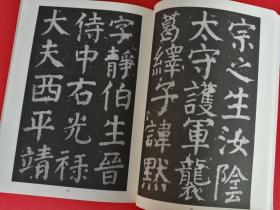 宗之生汝陰
太守護軍襲
葛繹子諱默
字靜伯生晉
侍中右光祿
大夫西平靖